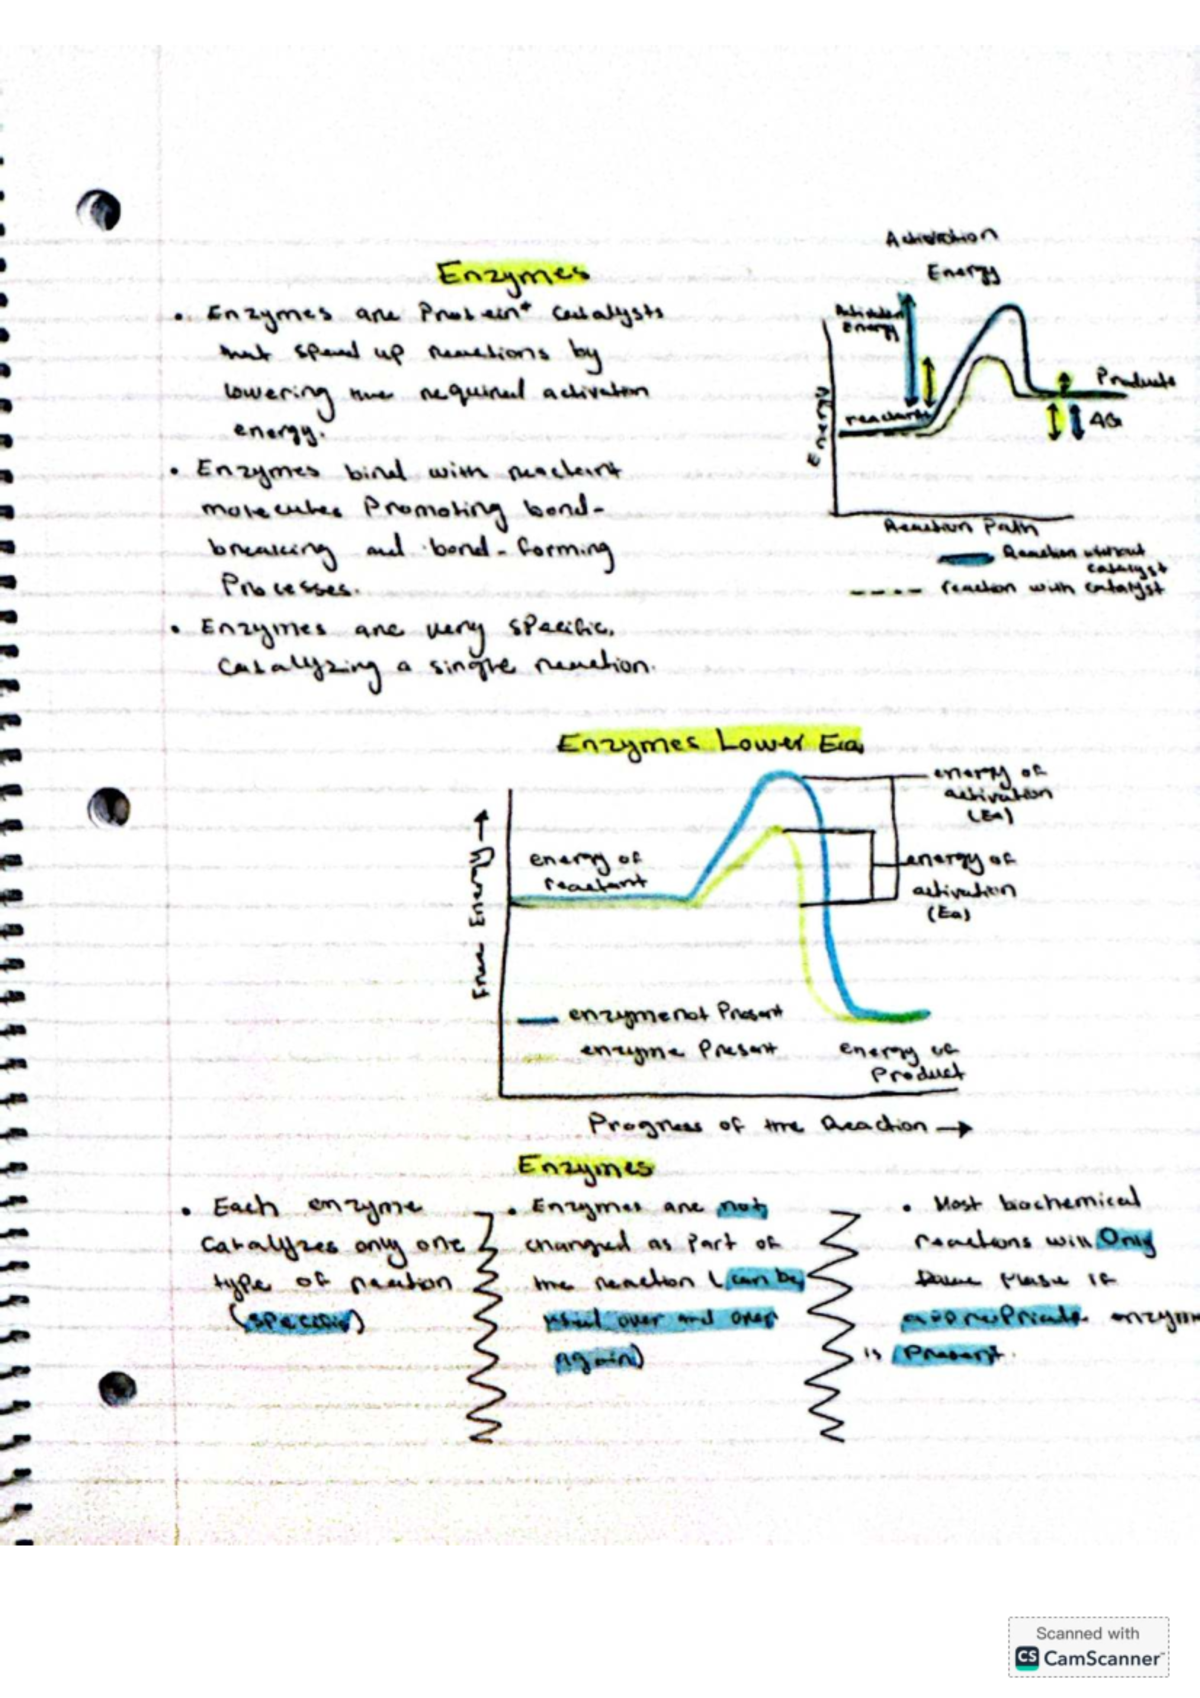 Enzymes
• Enzymes are Protein* Catalysts
that speed up reactions by
lowering the required activation
energy.
• Enzymes bind with reactant
molecules Promoting bond-
breaking and bond-forming
Processes.
• Enzymes are very specific,
Catalyzing a single reaction.
Activation
Energy
Activation
Energy
Products
reactants
ΔG
Energy
Reaction Path
Reaction without
catalyst
reaction with catalyst
Enzymes Lower Ea
energy of
activation
(Ea)
energy of
reactant
energy of
activation
(Ea)
Free Energy →
enzyme not Present
enzyme Present
energy of
Product
Progress of the Reaction →
Enzymes
• Each enzyme
Catalyzes only one
type of reaction
(specific)
• Enzymes are not
changed as part of
the reaction (can be
used over and over
again)
• Most biochemical
reactions will Only
take place if
appropriate enzym
is Present.
Scanned with
CS CamScanner